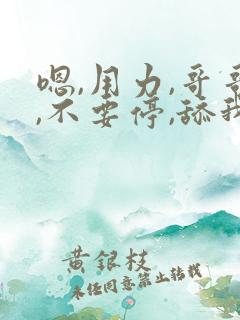 嗯,用力,哥哥
,不要停,舔我
黄銀枝
未经同意禁止转载